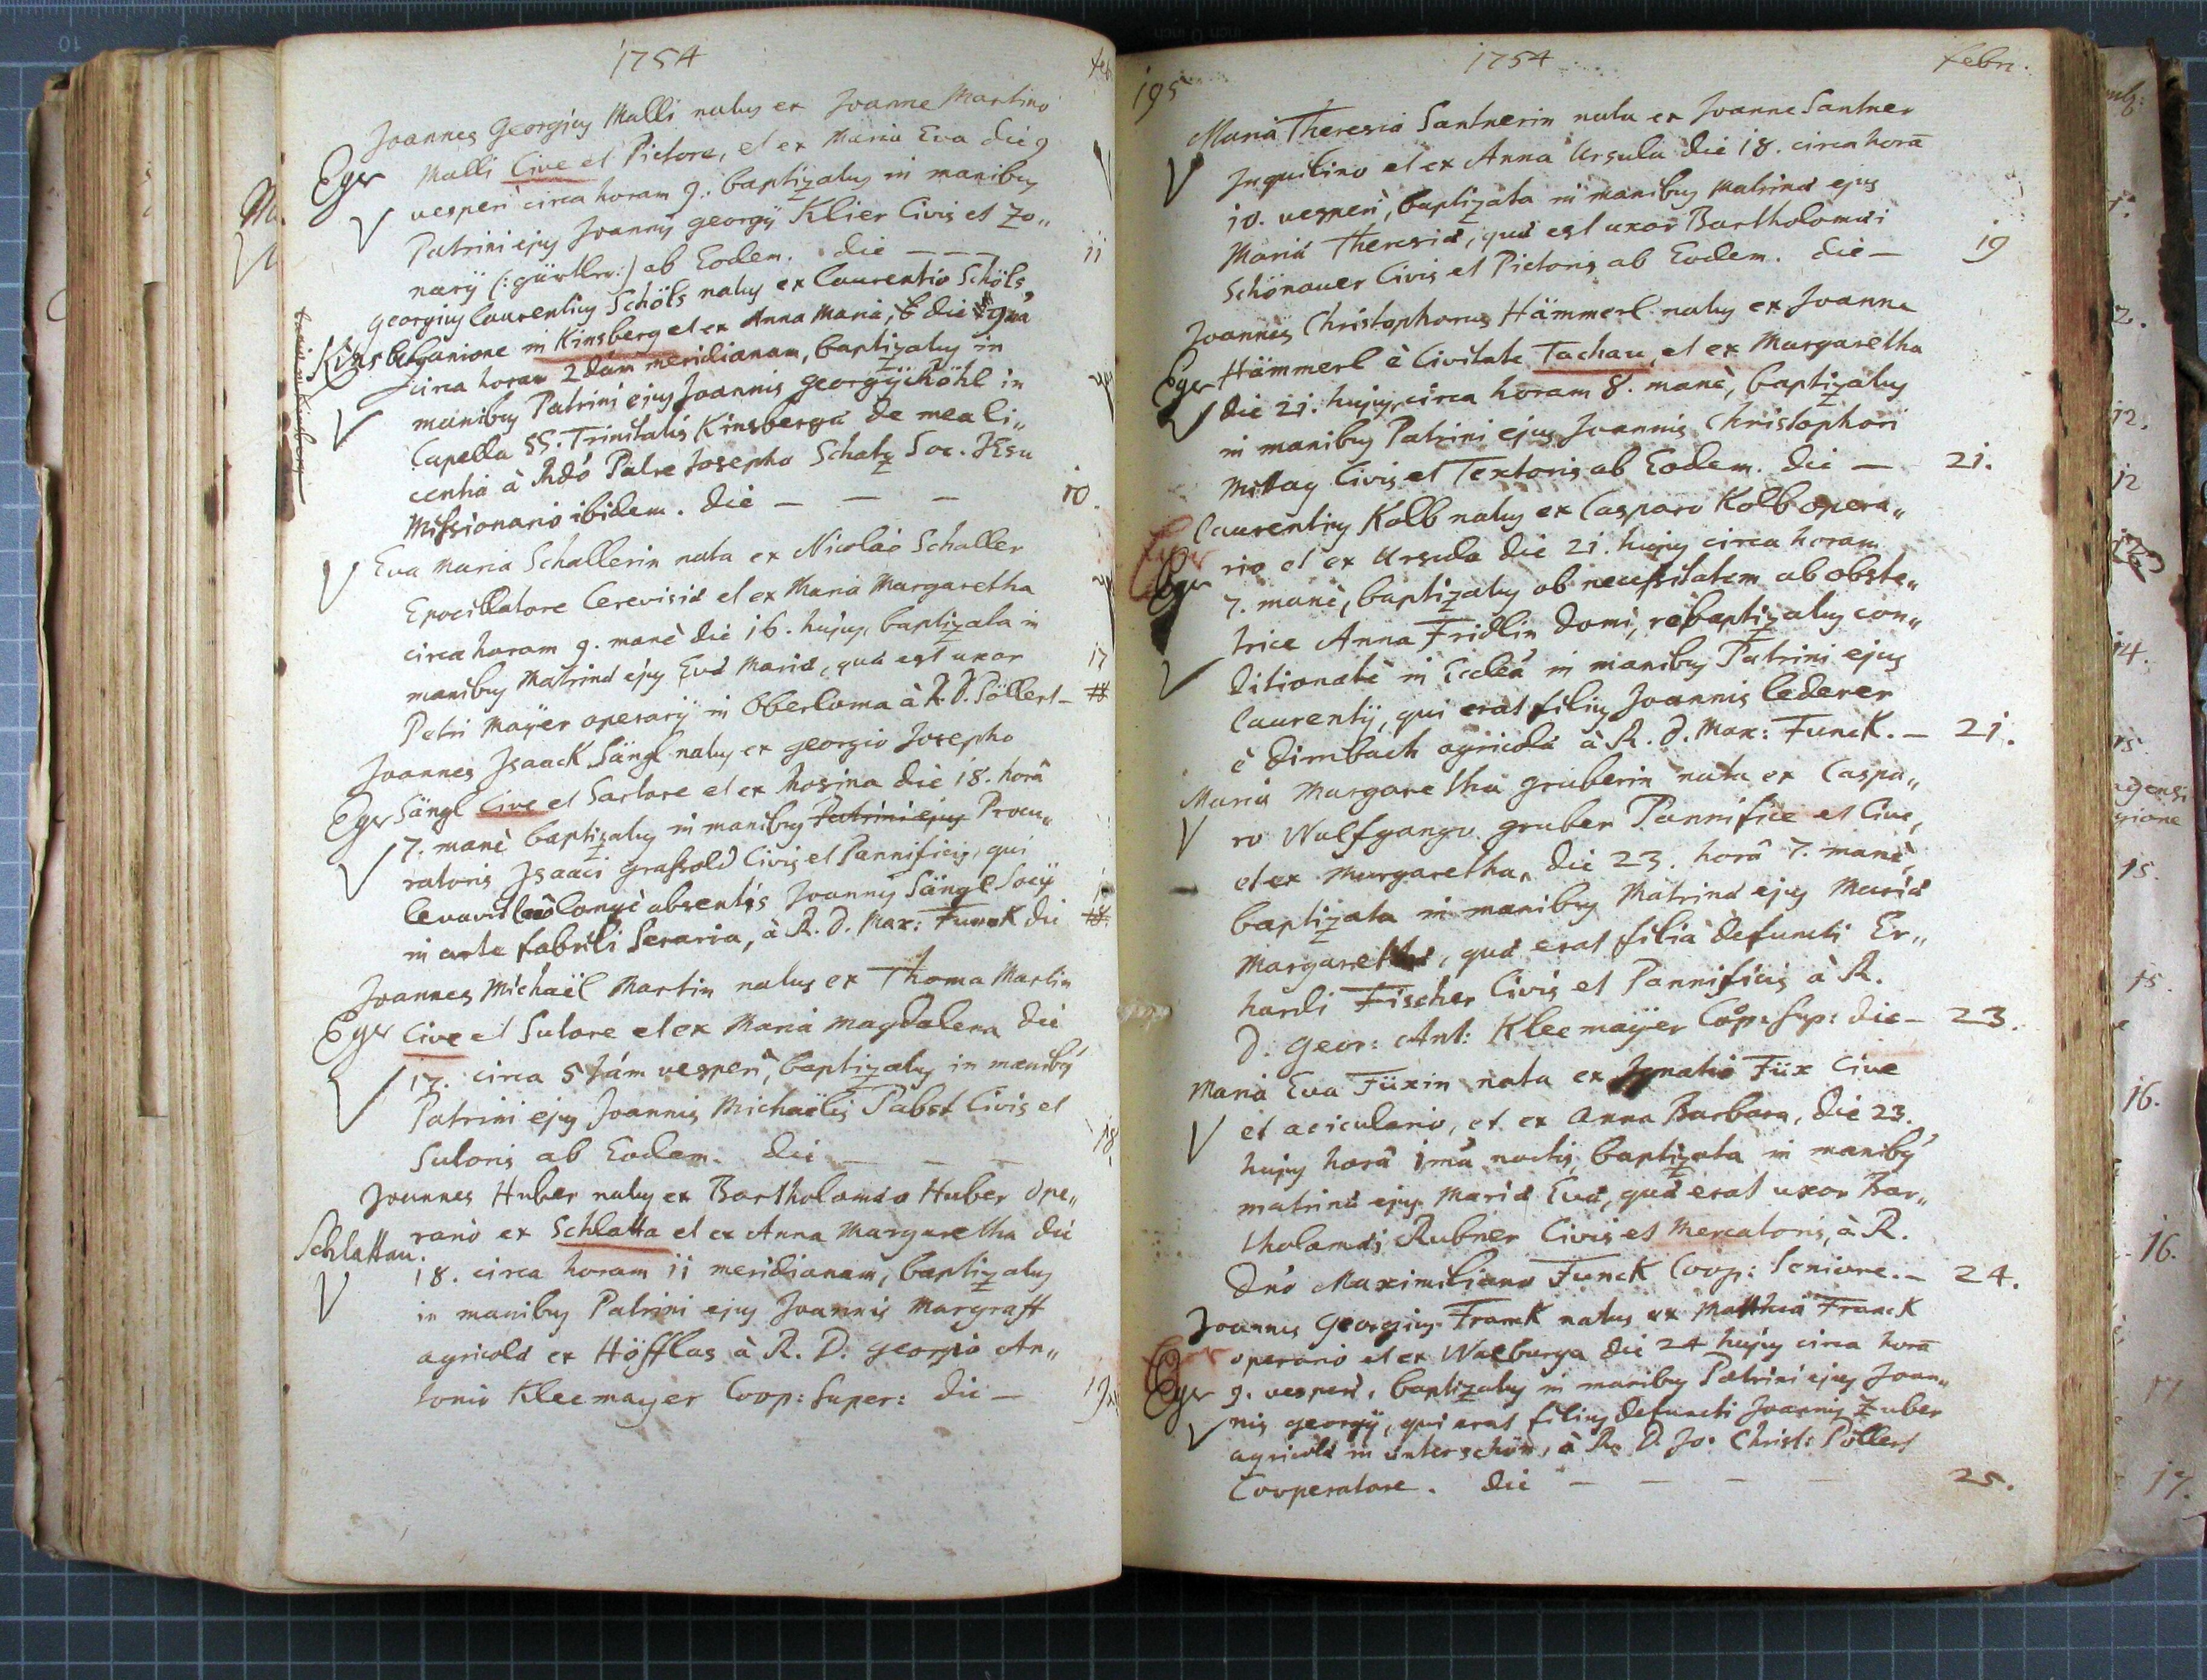 1754
feb
Joannes Georgius Malli natus ex Joanne Martino
Eger Malli Cive et Pictore, et ex Maria Eva die 9
vesperi circa horam 9. baptizatus in manibus
Patrini ejus Joannis georgÿ Klier Civis et Zo„
narÿ (:gürtler:) ab Eodem. die — — — 11
Georgius Laurentius Schöls natus ex Laurentio Schöls,
Kinsberg in Kinsberg et ex Anna Maria, die 9na
circa horam 2dam meridianam, baptizatus in
manibus Patrini ejus Joannis georgÿ Köhl in
Capella SS. Trinitatis Kinsbergæ de mea li„
centia à Rdo Patre Josepho Schatz Soc. JEsu
Missionario ibidem. die — — — 10.
Eva Maria Schallerin nata ex Nicolao Schaller
Epocillatore Cerevisiæ et ex Maria Margaretha
circa horam 9. manè die 16. hujus, baptizata in
manibus Matrinæ ejus Evæ Mariæ, quæ est uxor 17
Petri Maÿer operarÿ in Oberloma à R. D. Pöllert —
Joannes Isaack Sängl natus ex georgio Josepho
Eger Sängl Cive et Sartore et ex Rosina die 18. horâ
7. manè baptizatus in manibus Patrini ejus Procu„
ratoris Isaaci grassold Civis et Pannificis, qui
levavit loco absentis Joannis Sängl Socÿ
in arte fabrili Seraria, à R. D. Max: Funck die 18
Joannes Michaël Martin natus ex Thoma Martin
Eger Cive et Sutore et ex Maria Magdalena die
17. circa 5tam vesperi, baptizatus in manibus
Patrini ejus Joannis Michaëlis Pabst Civis et
Sutoris ab Eodem. die — — — 18
Joannes Huber natus ex Bartholomæo Huber ope„
Schlattau. rario ex Schlatta et ex Anna Margaretha die
18. circa horam 11 meridianam, baptizatus
in manibus Patrini ejus Joannis Margraff
agricolæ ex Höfflas à R. D. georgio An„
tonio Kleemayer Coop: Super: die — 19
195
1754
febr.
Maria Theresia Santnerin nata ex Joanne Santner
Inquilino et ex Anna Ursula die 18. circa horā
10. vesperi, baptizata in manibus Matrinæ ejus
Mariæ Theresiæ, quæ est uxor Bartholomæi
Schönauer Civis et Pictoris ab Eodem. die — 19
Joannes Christophorus Hämmerl natus ex Joanne
Eger Hämmerl è Civitate Tachau, et ex Margaretha
die 21. hujus circa horam 8. manè, baptizatus
in manibus Patrini ejus Joannis Christophori
Mittag Civis et Textoris ab Eodem. die — 21.
Laurentius Kolb natus ex Casparo Kolb opera„
Eger rio et ex Ursula die 21. hujus circa horam
7. manè, baptizatus ob necessitatem ab obste„
trice Anna Fridlin domi, rebaptizatus con„
ditionatè in Ecclea in manibus Patrini ejus
Laurentÿ, qui erat filius Joannis Lederer
è Dirnbach agricolæ à R. D. Max: Funck. — 21.
Maria Margaretha gruberin nata ex Caspa„
ro Wolfgango gruber Pannifice et Cive,
et ex Margaretha, die 23. horâ 7. manè,
baptizata in manibus Matrinæ ejus Mariæ
Margarethæ, quæ erat filia defuncti Er„
hardi Fischer Civis et Pannificis à R.
D. Geor: Ant: Kleemaÿer Coop: Sup: die — 23.
Maria Eva Füxin nata ex Ignatio Füx Cive
et aciculario, et ex Anna Barbara, die 23.
hujus horâ 1mâ noctis, baptizata in manibus
matrinæ ejus Mariæ Evæ, quæ erat uxor Bar„
tholomæi Rubner Civis et Mercatoris, à R.
Dno Maximiliano Funck Coop: Seniore. — 24.
Joannes Georgius Franck natus ex Matthia Franck
Eger operario et ex Walburga die 24 hujus circa horā
9. vesperi, baptizatus in manibus Patrini ejus Joan„
nis georgÿ, qui erat filius defuncti Joannis Zuber
agricolæ in Unterschön, à R. D. Jo. Christ: Pöllert
Cooperatore. die — — — 25.